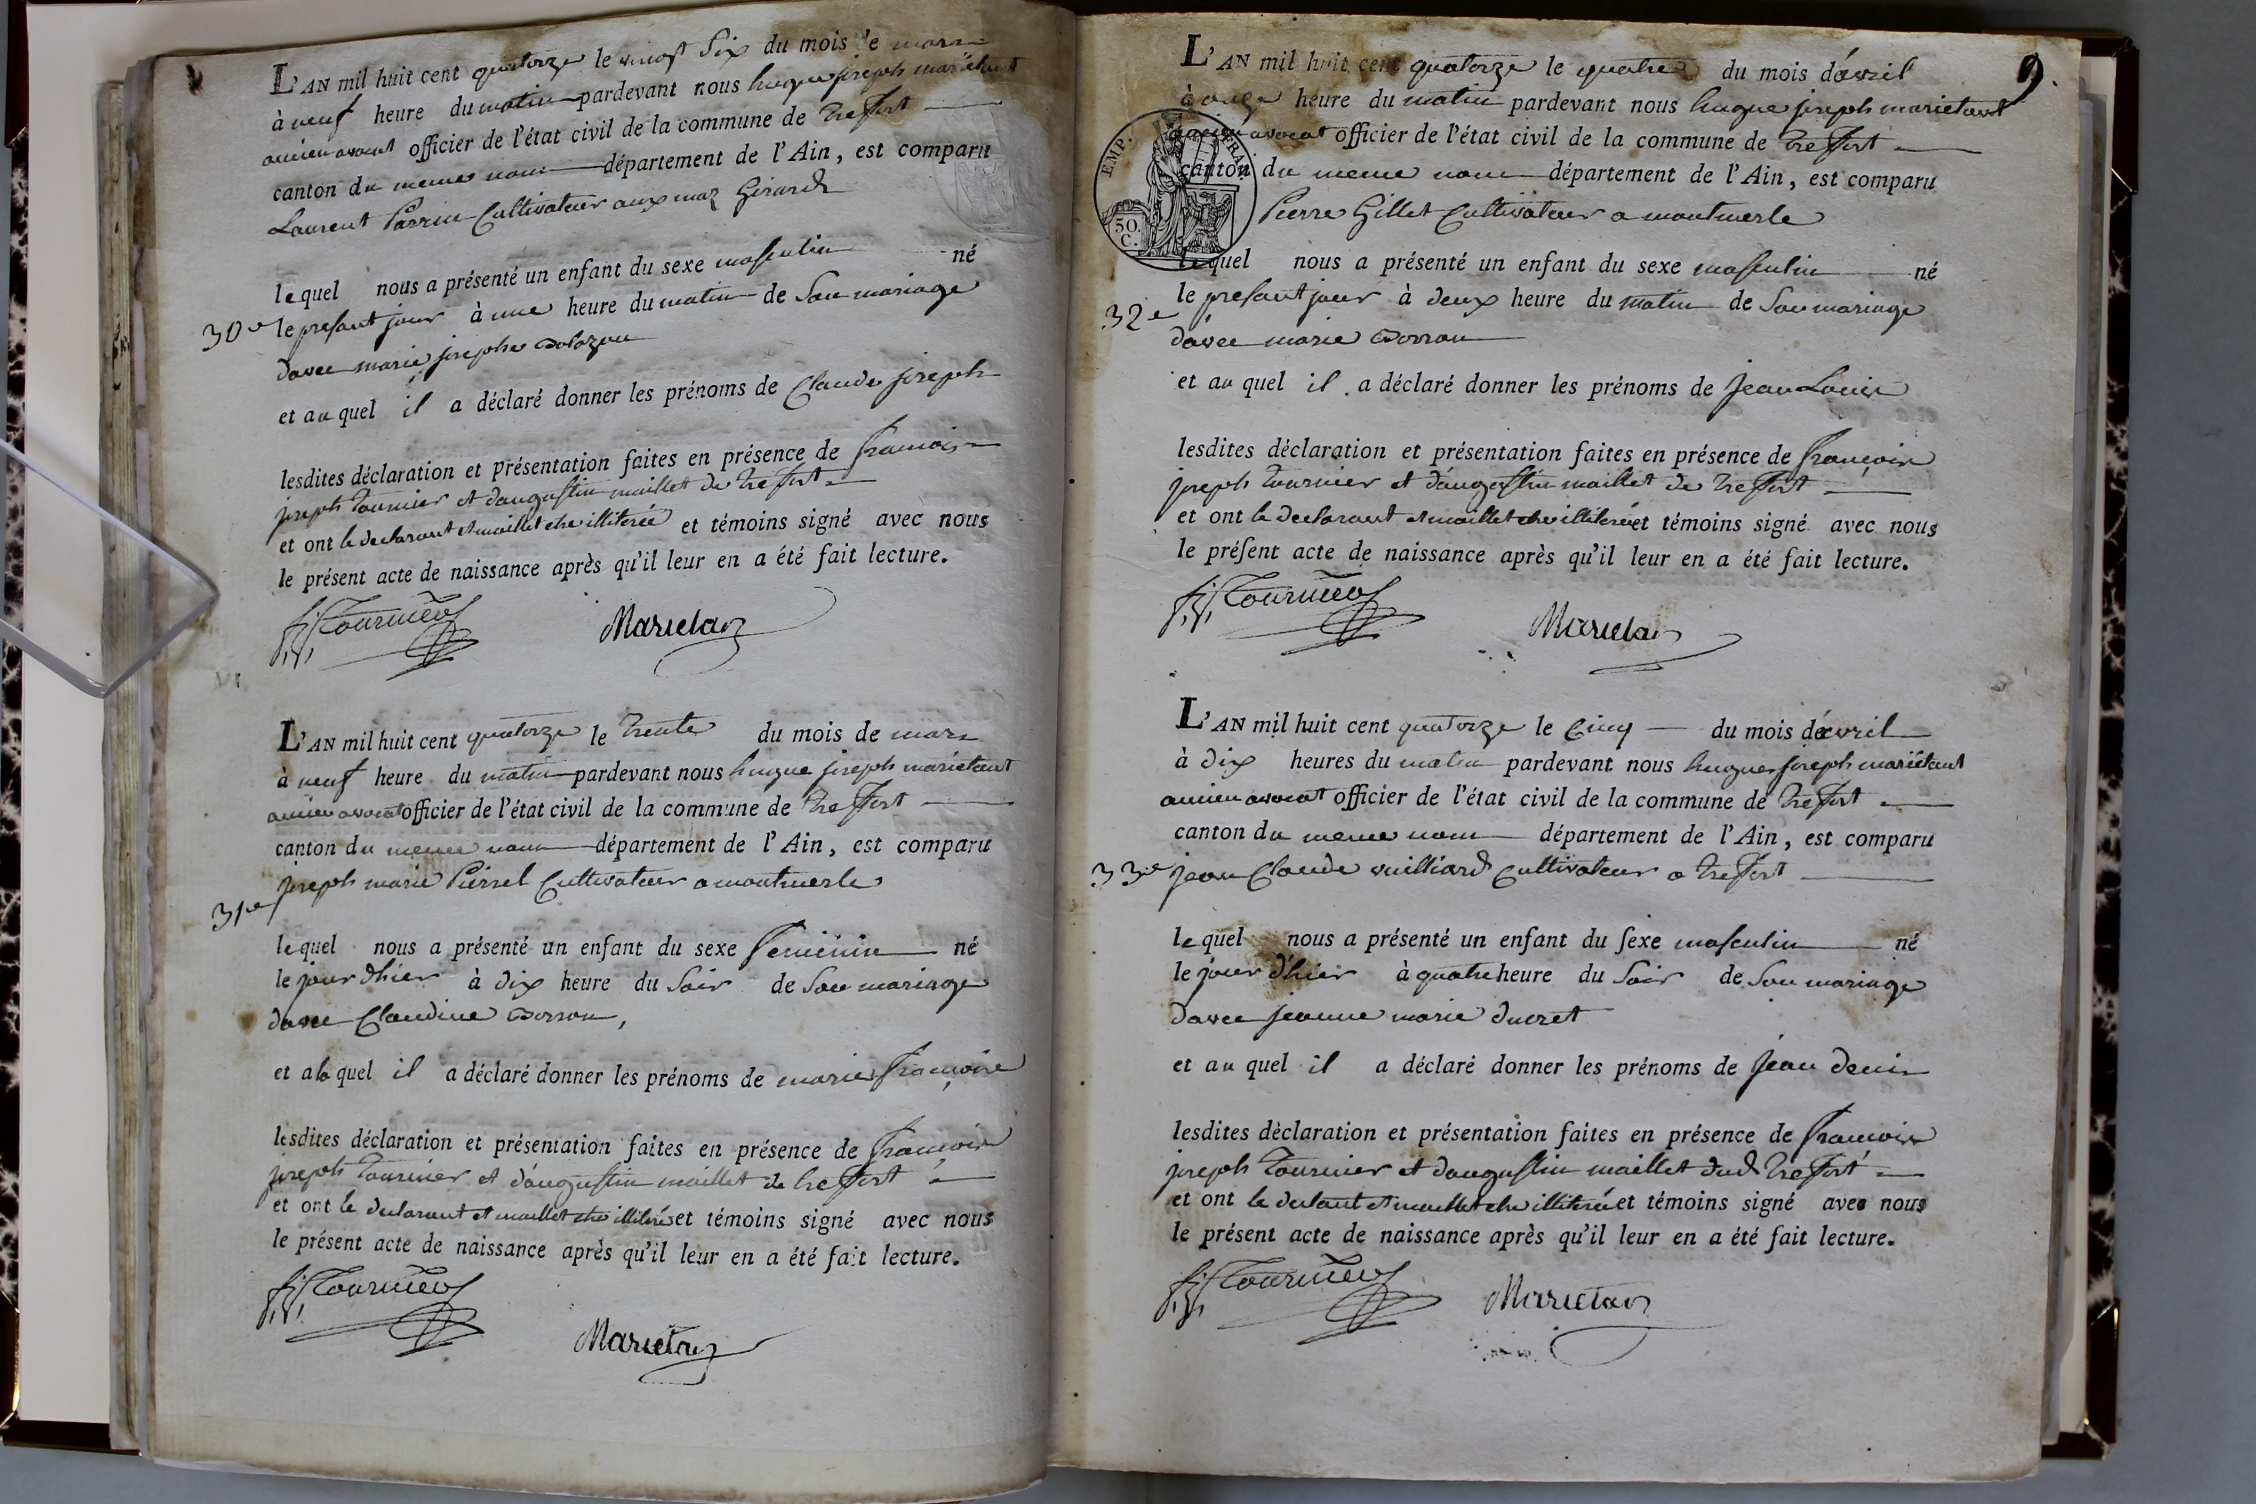 L'AN mil huit cent quatorze le vingt six du mois de mars
à neuf heure du matin pardevant nous hugue joseph mariétant
ancien avocat officier de l'état civil de la commune de treffort
canton du meme nom département de l'Ain, est comparu
Laurent Perrin Cultivateur aux maz Girard
lequel nous a présenté un enfant du sexe masculin né
30e le presant jour à une heure du matin de Son mariage
davec marie josephe
et au quel il a déclaré donner les prénoms de Claude joseph
lesdites déclaration et présentation faites en présence de francois
joseph tournier et daugustin maillet de treffort
et ont le declarant et maillet illiterée et témoins signé avec nous
le présent acte de naissance après qu'il leur en a été fait lecture.
f. j. Tournier Marietan
L'AN mil huit cent quatorze le trente du mois de mars
à neuf heure du matin pardevant nous hugue joseph mariétant
ancien avocat officier de l'état civil de la commune de treffort
canton du meme nom département de l'Ain, est comparu
joseph marie Pirrel Cultivateur a montmerle
31e
lequel nous a présenté un enfant du sexe feminin né
le jour dhier à dix heure du Soir de Son mariage
davec Claudine Dorron,
et a la quel il a déclaré donner les prénoms de marie françoise
lesdites déclaration et présentation faites en présence de francois
joseph tournier et d'augustin maillet de treffort
et ont le declarant et maillet illiteré et témoins signé avec nous
le présent acte de naissance après qu'il leur en a été fait lecture.
f. j. Tournier
Marietan
9.
L'AN mil huit cent quatorze le quatre du mois d'avril
à onze heure du matin pardevant nous hugue joseph marietant
ancien avocat officier de l'état civil de la commune de treffort
EMP. FRAN
canton du meme nom département de l'Ain, est comparu
Pierre Gillet Cultivateur a montmerle
50.
C.
lequel nous a présenté un enfant du sexe masculin né
32e le presant jour à deux heure du matin de Son mariage
davec marie Dorron
et au quel il a déclaré donner les prénoms de Jean Louis
lesdites déclaration et présentation faites en présence de françois
joseph tournier et d'augustin maillet de treffort
et ont le declarant et maillet illiteré et témoins signé avec nous
le préſent acte de naissance après qu'il leur en a été fait lecture.
f. j. Tournier
Marietan
L'AN mil huit cent quatorze le Cinq du mois d'avril
à dix heures du matin pardevant nous hugues joseph mariétant
ancien avocat officier de l'état civil de la commune de treffort
canton du meme nom département de l'Ain, est comparu
33e jean Claude vuilliard Cultivateur a treffort
lequel nous a présenté un enfant du ſexe masculin né
le jour d'hier à quatre heure du Soir de Son mariage
davec jeanne marie ducret
et au quel il a déclaré donner les prénoms de Jean denis
lesdites déclaration et présentation faites en présence de francois
joseph tournier et daugustin maillet dud treffort
et ont le declant et maillet illiteré et témoins signé avec nous
le présent acte de naissance après qu'il leur en a été fait lecture.
f. j. Tournier
Marietan